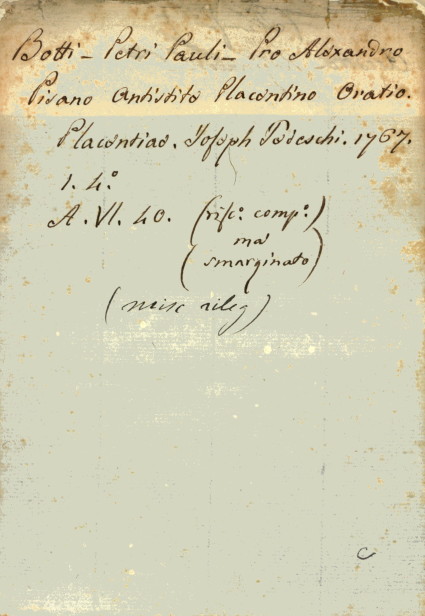 Botti - Petri Pauli - Pro Alexandro
Pisano Antistite Placentino Oratio.
Placentiae. Joseph Tedeschi. 1767.
1. 4.°
A. VI. 40. (risc.° comp.°)
(ma
smarginato)
(misc rileg)
C